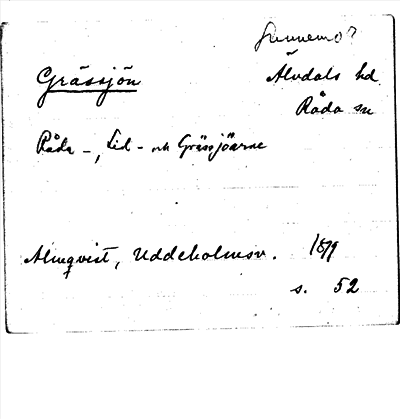 Gunnemo?
Grässjön
Älvdals hd.
Råda sn
Råda -, Lid - och Grässjöarne
Almqvist, Uddeholmsv. 1899
s. 52